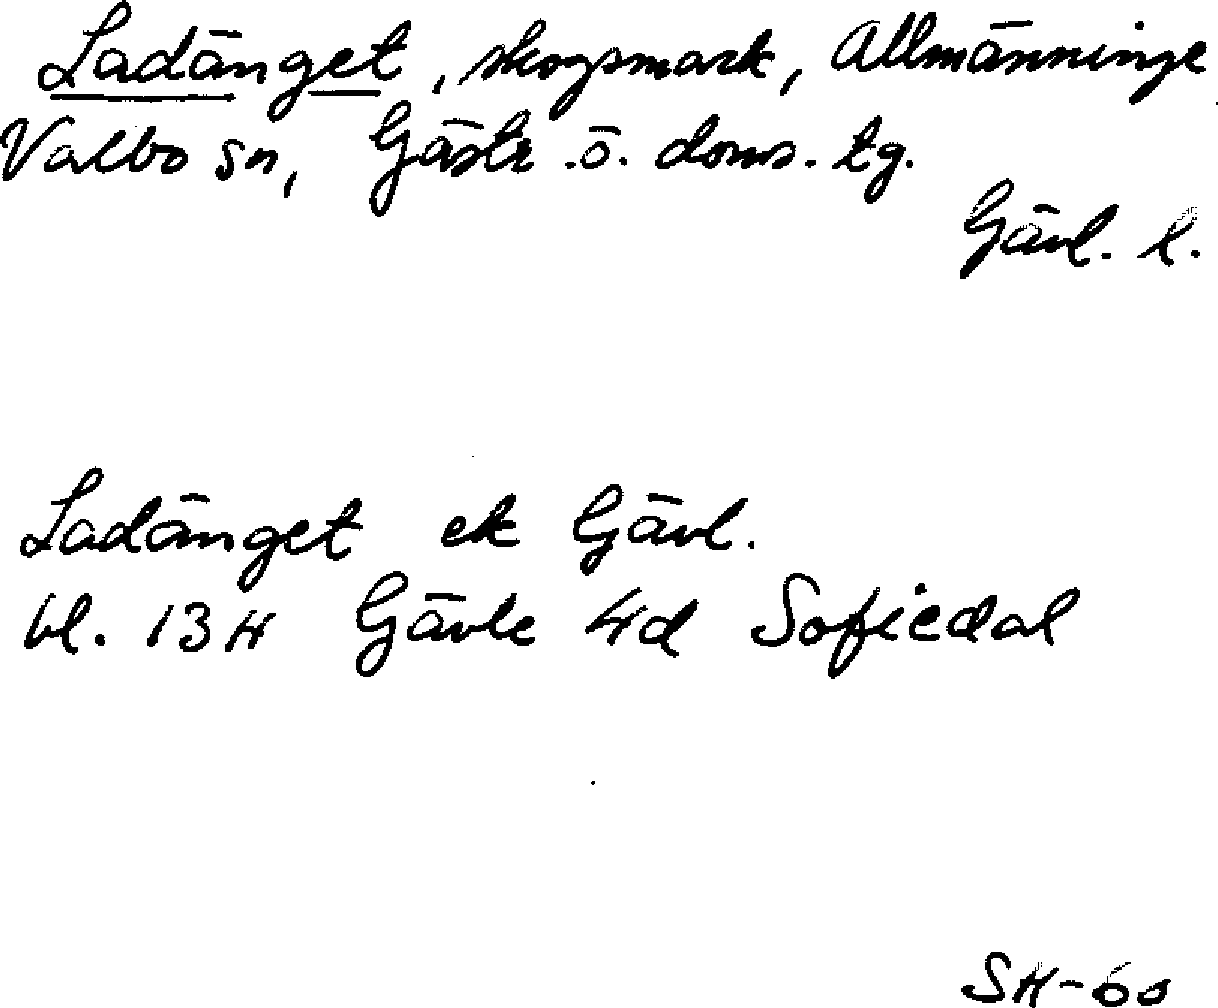 Ladänget, skogsmark, Allmänninge
Valbo sn, Gästr. ö. doms. tg.
Gävl. l.
Ladänget ek Gävl.
bl. 13H Gävle 4d Sofiedal
SH-60